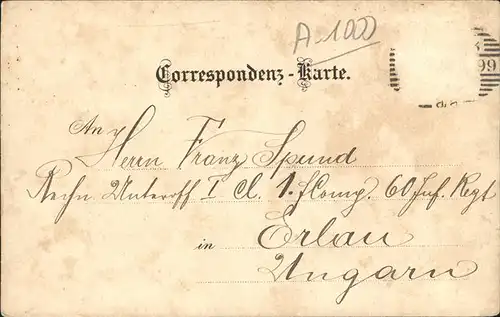 A-1000
99
Correspondenz-Karte.
An
Herrn Franz Spund
Rechn. Unteroff I Cl. 1. Comp. 60 Inf. Regt
in Erlau
Ungarn